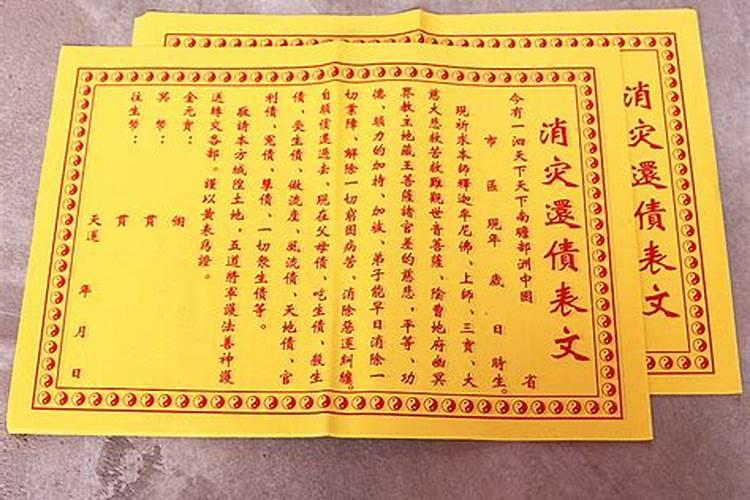 消灾還債表文
今有一泗天下天下南贍部洲中國 省
市 區 現年 歲 日 時生。
現祈求本師釋迦牟尼佛、上師、三寶、大
慈大悲救苦救難觀世音菩薩、陰曹地府幽冥
界教主地藏王菩薩諸官差的慈悲，平等、功
德、願力的加持、加被、弟子能早日消除一
切業障、解除一切窮困病苦、消除惡運糾纏。
自願償還過去、現在父母債、吃生債、殺生
債、受生債、做流産、風流債、天地債、官
利債、冤債、孽債、一切衆生債等。
敬請本方城隍土地，五道將軍護法善神護
送轉交各部。謹以黄表爲證。
金元寶： 個
冥幣： 貫
往生幣： 貫
天運 年 月 日
消灾還債表文